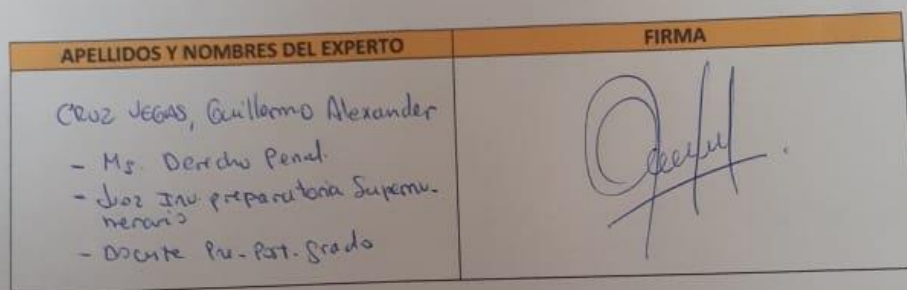 APELLIDOS Y NOMBRES DEL EXPERTO
FIRMA
CRUZ VEGAS, Guillermo Alexander
- Mg. Derecho Penal.
- Juez Inv. preparatoria Supernu-
merario
- Docente Pre-Post-grado